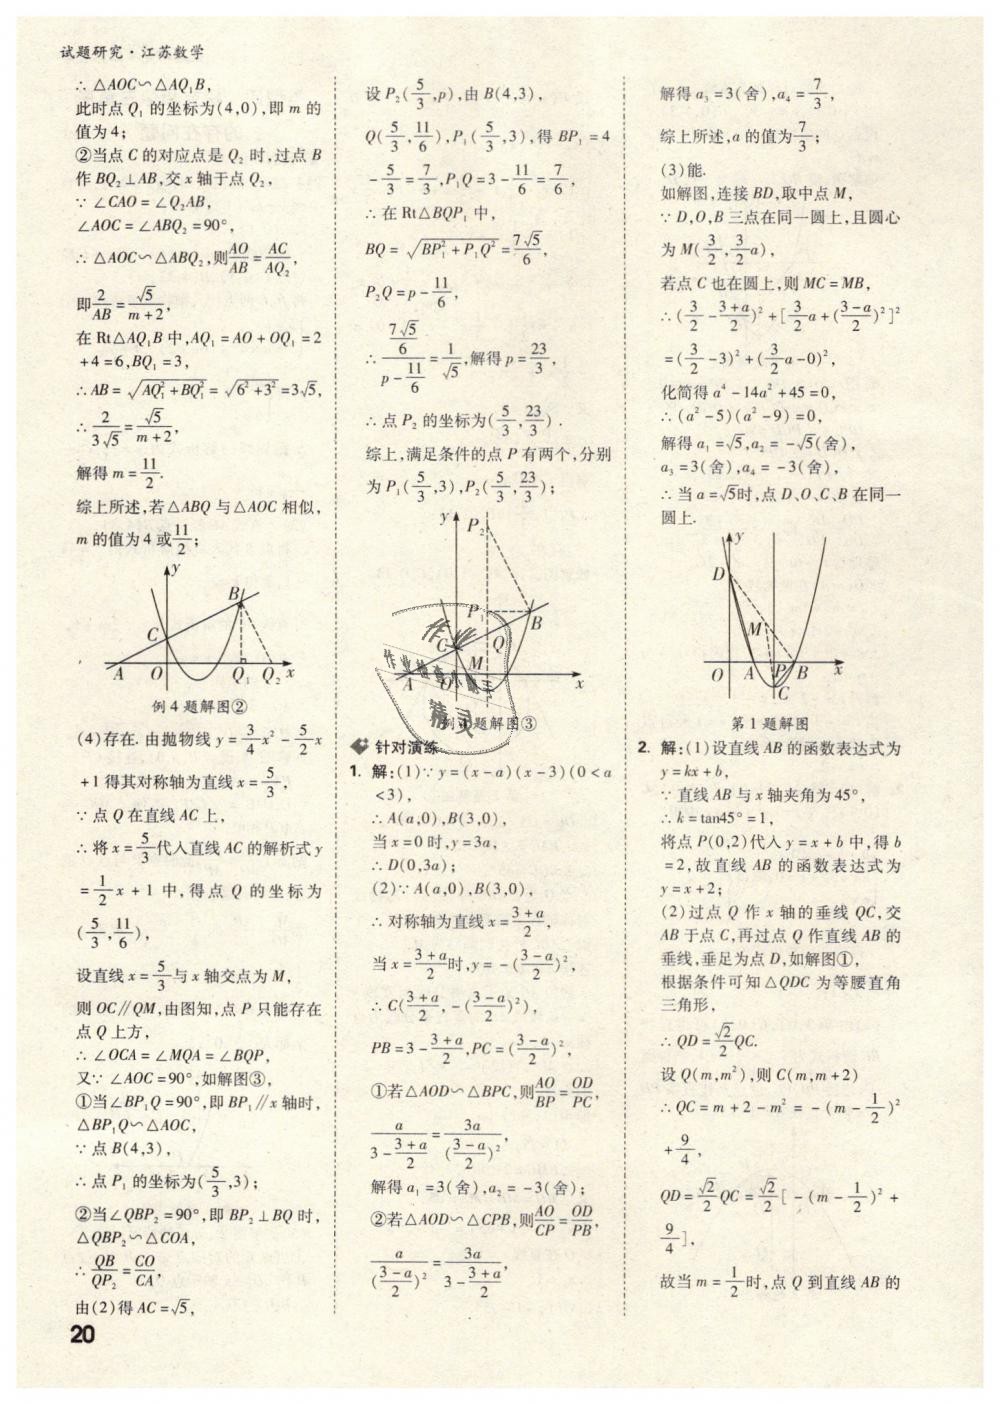 试题研究·江苏数学
∴ △AOC∽△AQ₁B,
此时点 Q₁ 的坐标为(4,0),即 m 的
值为4;
②当点 C 的对应点是 Q₂ 时,过点 B
作 BQ₂⊥AB,交 x 轴于点 Q₂,
∵ ∠CAO=∠Q₂AB,
∠AOC=∠ABQ₂=90°,
∴ △AOC∽△ABQ₂,则AO/AB=AC/AQ₂,
即2/AB=√5/(m+2),
在 Rt△AQ₁B 中,AQ₁=AO+OQ₁=2
+4=6,BQ₁=3,
∴ AB=√(AQ₁²+BQ₁²)=√(6²+3²)=3√5,
∴ 2/(3√5)=√5/(m+2),
解得 m=11/2.
综上所述,若△ABQ 与△AOC 相似,
m 的值为4或11/2;
y
B
C
A O Q₁ Q₂ x
例4题解图②
(4)存在. 由抛物线 y=3/4x²-5/2x
+1得其对称轴为直线 x=5/3,
∵ 点 Q 在直线 AC 上,
∴ 将 x=5/3代入直线 AC 的解析式 y
=1/2x+1 中,得点 Q 的坐标为
(5/3,11/6),
设直线 x=5/3与 x 轴交点为 M,
则 OC∥QM,由图知,点 P 只能存在
点 Q 上方,
∴ ∠OCA=∠MQA=∠BQP,
又∵ ∠AOC=90°,如解图③,
①当∠BP₁Q=90°,即 BP₁∥x 轴时,
△BP₁Q∽△AOC,
∵ 点 B(4,3),
∴ 点 P₁ 的坐标为(5/3,3);
②当∠QBP₂=90°,即 BP₂⊥BQ 时,
△QBP₂∽△COA,
∴ QB/QP₂=CO/CA,
由(2)得 AC=√5,
20
设 P₂(5/3,p),由 B(4,3),
Q(5/3,11/6),P₁(5/3,3),得 BP₁=4
-5/3=7/3,P₁Q=3-11/6=7/6,
∴ 在 Rt△BQP₁ 中,
BQ=√(BP₁²+P₁Q²)=7√5/6,
P₂Q=p-11/6,
∴ (7√5/6)/(p-11/6)=1/√5,解得 p=23/3,
∴ 点 P₂ 的坐标为(5/3,23/3).
综上,满足条件的点 P 有两个,分别
为 P₁(5/3,3),P₂(5/3,23/3);
y P₂
P
B
C Q
M
A x
作业检查小
精灵
题解图③
针对演练
1. 解:(1)∵ y=(x-a)(x-3)(0<a
<3),
∴ A(a,0),B(3,0),
当 x=0 时,y=3a,
∴ D(0,3a);
(2)∵ A(a,0),B(3,0),
∴ 对称轴为直线 x=(3+a)/2,
当 x=(3+a)/2时,y=-((3-a)/2)²,
∴ C((3+a)/2,-((3-a)/2)²),
PB=3-(3+a)/2,PC=((3-a)/2)²,
①若△AOD∽△BPC,则AO/BP=OD/PC,
a/(3-(3+a)/2)=3a/((3-a)/2)²,
解得 a₁=3(舍),a₂=-3(舍);
②若△AOD∽△CPB,则AO/CP=OD/PB,
a/((3-a)/2)²=3a/(3-(3+a)/2),
解得 a₃=3(舍),a₄=7/3,
综上所述,a 的值为7/3;
(3)能.
如解图,连接 BD,取中点 M,
∵ D,O,B 三点在同一圆上,且圆心
为 M(3/2,3/2a),
若点 C 也在圆上,则 MC=MB,
∴ (3/2-(3+a)/2)²+[3/2a+((3-a)/2)²]²
=(3/2-3)²+(3/2a-0)²,
化简得 a⁴-14a²+45=0,
∴ (a²-5)(a²-9)=0,
解得 a₁=√5,a₂=-√5(舍),
a₃=3(舍),a₄=-3(舍),
∴ 当 a=√5时,点 D、O、C、B 在同一
圆上.
y
D
M
O A P B x
C
第1题解图
2. 解:(1)设直线 AB 的函数表达式为
y=kx+b,
∵ 直线 AB 与 x 轴夹角为45°,
∴ k=tan45°=1,
将点 P(0,2)代入 y=x+b 中,得 b
=2,故直线 AB 的函数表达式为
y=x+2;
(2)过点 Q 作 x 轴的垂线 QC,交
AB 于点 C,再过点 Q 作直线 AB 的
垂线,垂足为点 D,如解图①,
根据条件可知△QDC 为等腰直角
三角形,
∴ QD=√2/2QC.
设 Q(m,m²),则 C(m,m+2)
∴ QC=m+2-m²=-(m-1/2)²
+9/4,
QD=√2/2QC=√2/2[-(m-1/2)²+
9/4],
故当 m=1/2时,点 Q 到直线 AB 的